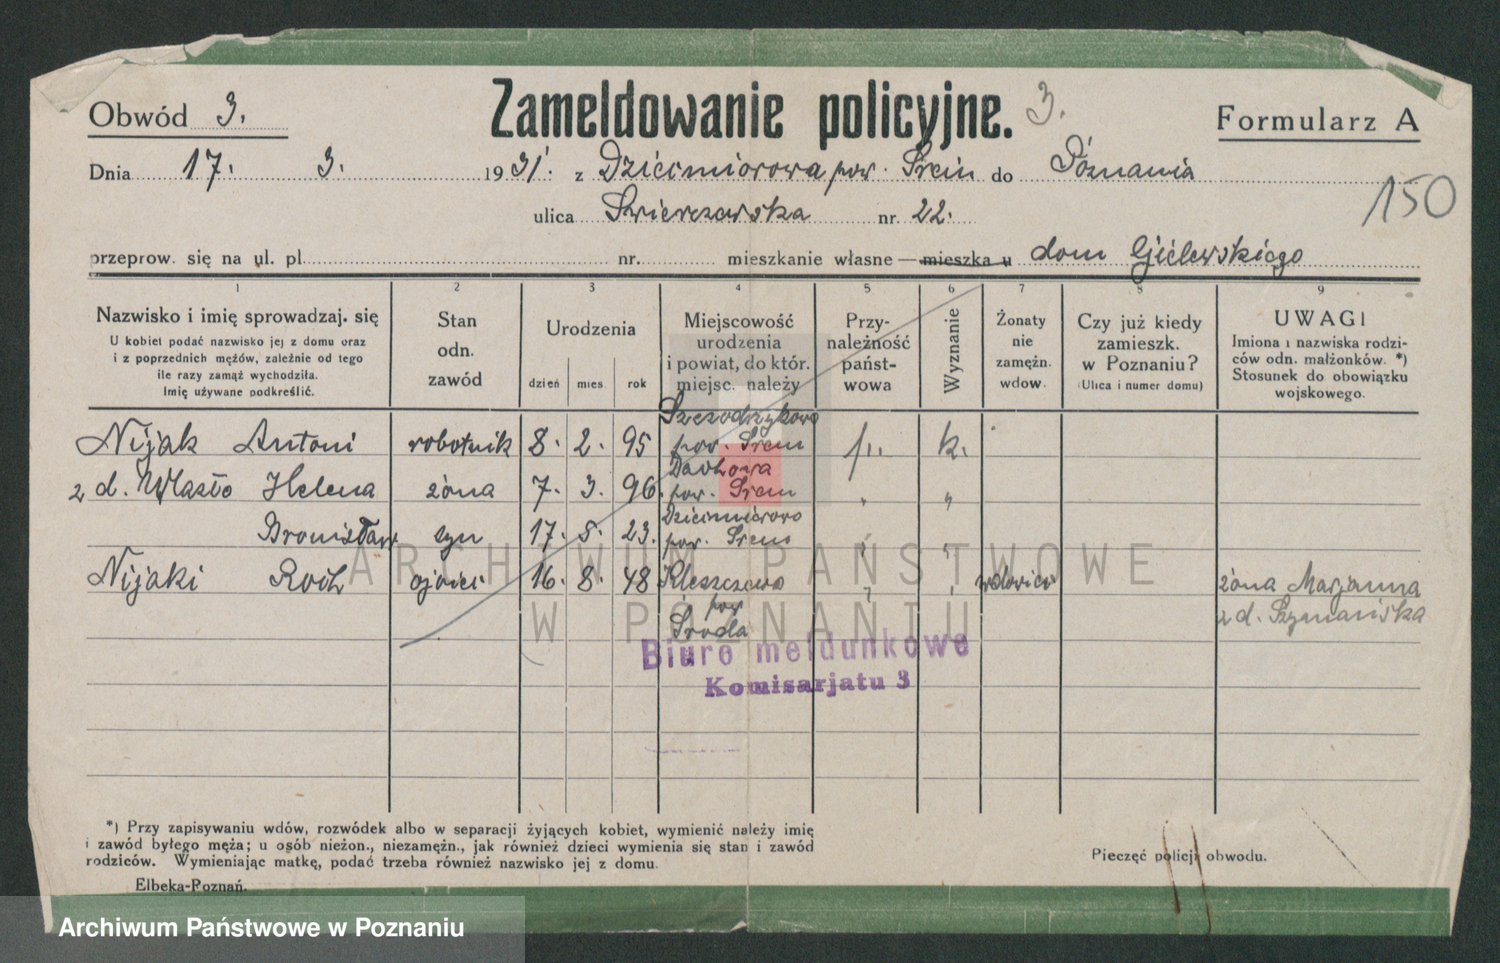 Zameldowanie policyjne. 3.
Obwód 3.
Formularz A
Dnia 17. 3. 1931. z Dzićmiorowa pow. Śrem do Poznania
150
ulica Świerczewska nr. 22.
przeprow. się na ul. pl. nr. mieszkanie własne — mieszka u dom
1 2 3 4 5 6 7 8 9
Nazwisko i imię sprowadzaj. się
U kobiet podać nazwisko jej z domu oraz
i z poprzednich mężów, zależnie od tego
ile razy zamąż wychodziła.
Imię używane podkreślić.
Stan
odn.
zawód
Urodzenia
dzień mies. rok
Miejscowość
urodzenia
i powiat, do któr.
miejsc. należy
Przy-
należność
państ-
wowa
Wyznanie
Żonaty
nie
zamężn.
wdow.
Czy już kiedy
zamieszk.
w Poznaniu?
(Ulica i numer domu)
UWAGI
Imiona i nazwiska rodzi-
ców odn. małżonków. *)
Stosunek do obowiązku
wojskowego.
Szczodrzykowo
Nijak Antoni robotnik 8. 2. 95 pow. Śrem p. k.
Dachowa
z d. Wlazło Helena żona 7. 3. 96. pow. Śrem " "
Dzićmiorowo
Bronisław syn 17. 5. 23. pow. Śrem " "
Nijaki Roch ojciec 16. 8. 48 Kleszczewo " " wdowiec żona Marjanna
pow z d. Szymańska
Środa
ARCHIWUM PAŃSTWOWE
W POZNANIU
Biuro meldunkowe
Komisarjatu 3
*) Przy zapisywaniu wdów, rozwódek albo w separacji żyjących kobiet, wymienić należy imię
i zawód byłego męża; u osób nieżon., niezamężn., jak również dzieci wymienia się stan i zawód
rodziców. Wymieniając matkę, podać trzeba również nazwisko jej z domu.
Pieczęć policji obwodu.
Elbeka-Poznań.
Archiwum Państwowe w Poznaniu